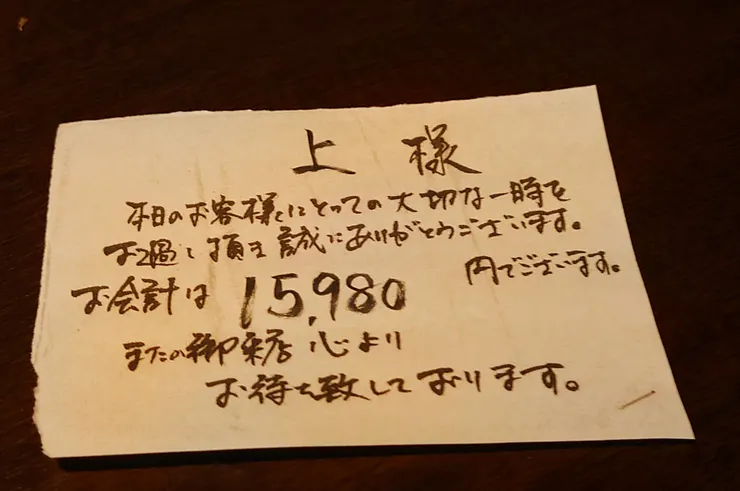 上様
本日のお客様にとっての大切な一時を
お過し頂き誠にありがとうございます。
お会計は 15,980 円でございます。
またの御来店心より
お待ち致しております。